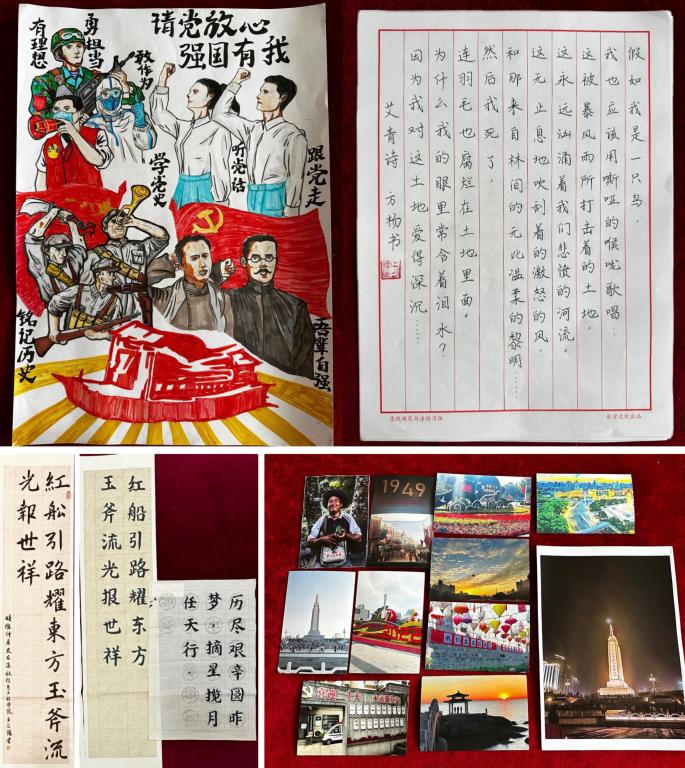 有理想
勇担当
敢作为
请党放心
强国有我
学党史
听党话
跟党走
铭记历史
吾辈自强
假如我是一只鸟，
我也应该用嘶哑的喉咙歌唱：
这被暴风雨所打击着的土地，
这永远汹涌着我们悲愤的河流，
这无止息地吹刮着的激怒的风，
和那来自林间的无比温柔的黎明……
然后我死了，
连羽毛也腐烂在土地里面。
为什么我的眼里常含着泪水？
因为我对这土地爱得深沉……
艾青诗 方杨书
竖线硬笔书法练习纸
紅船引路耀東方玉斧流
光報世祥
红船引路耀东方
玉斧流光报世祥
历尽艰辛圆昨
梦，摘星揽月
任天行。
1949
喜迎二十大